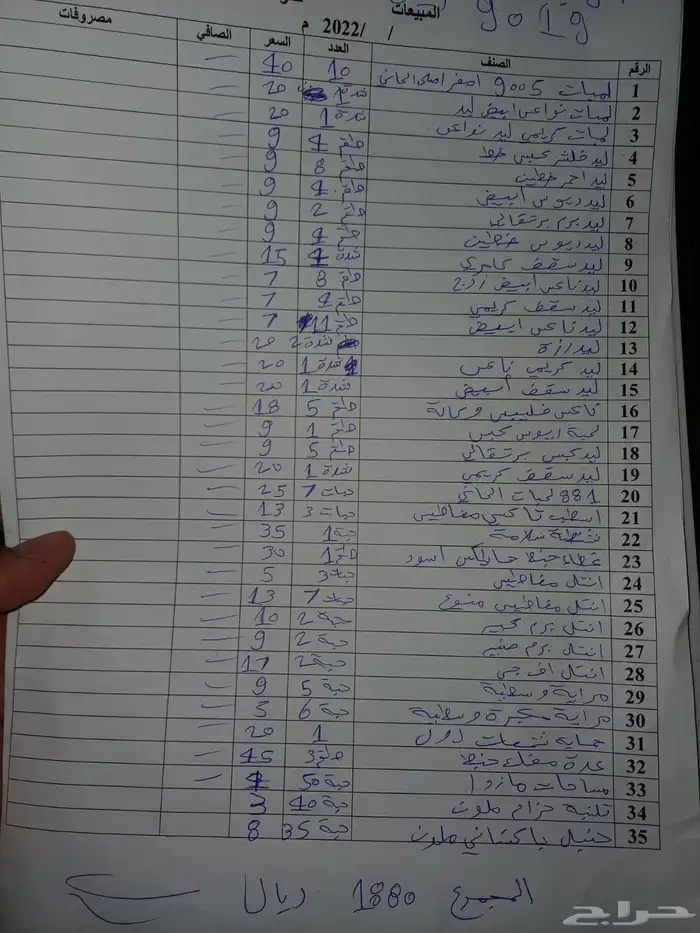 المبيعات
9019
/ /2022 م
الرقم الصنف العدد السعر الصافي مصروفات
1 لمبات 9005 اصفر اصلي الماني 10 40
2 لمبات نواعس ابيض ليد شدة 1 20
3 لمبات كريمي ليد نواعس شدة 1 20
4 ليد فلشر عبس خط طقم 4 9
5 ليد احمر خطين طقم 8 9
6 ليد ريوس ابيض طقم 4 9
7 ليد برم برتقالي طقم 2 9
8 ليد ريوس خطين طقم 4 9
9 ليد سقف شدة 4 15
10 ليد ناعس ابيض زوج طقم 8 7
11 ليد سقف كريمي طقم 4 7
12 ليد ناعس ابيض طقم 11 7
13 ليد رزة شدة 2 20
14 ليد كريمي ناعس شدة 1 20
15 ليد سقف ابيض شدة 1 20
16 ناعس فليبس وكالة طقم 5 18
17 لمبة ريوس عبس طقم 1 9
18 ليد عبس برتقالي طقم 5 9
19 ليد سقف كريمي شدة 1 20
20 881 لمبات الماني حبات 7 25
21 اسطب تاكسي مغاطيس حبات 3 13
22 شنطة سلامة حبة 1 35
23 غطاء جنط اسود طقم 1 30
24 انتل مغاطيس حبة 3 5
25 انتل مغاطيس منوع حبات 7 13
26 انتل برم كبير حبة 2 10
27 انتل برم صغير حبة 2 9
28 انتل اف جي حبة 2 17
29 مراية وسطية حبة 5 9
30 مراية مكبرة وسطية حبة 6 5
31 حماية دول 1 20
32 عدة مفك جنط طقم 3 45
33 مساحات مازدا حبة 50 4
34 تلبيسة حزام ملون حبة 40 3
35 حنبل باكستاني ملون حبة 35 8
المجموع 1880 ريال
حراج